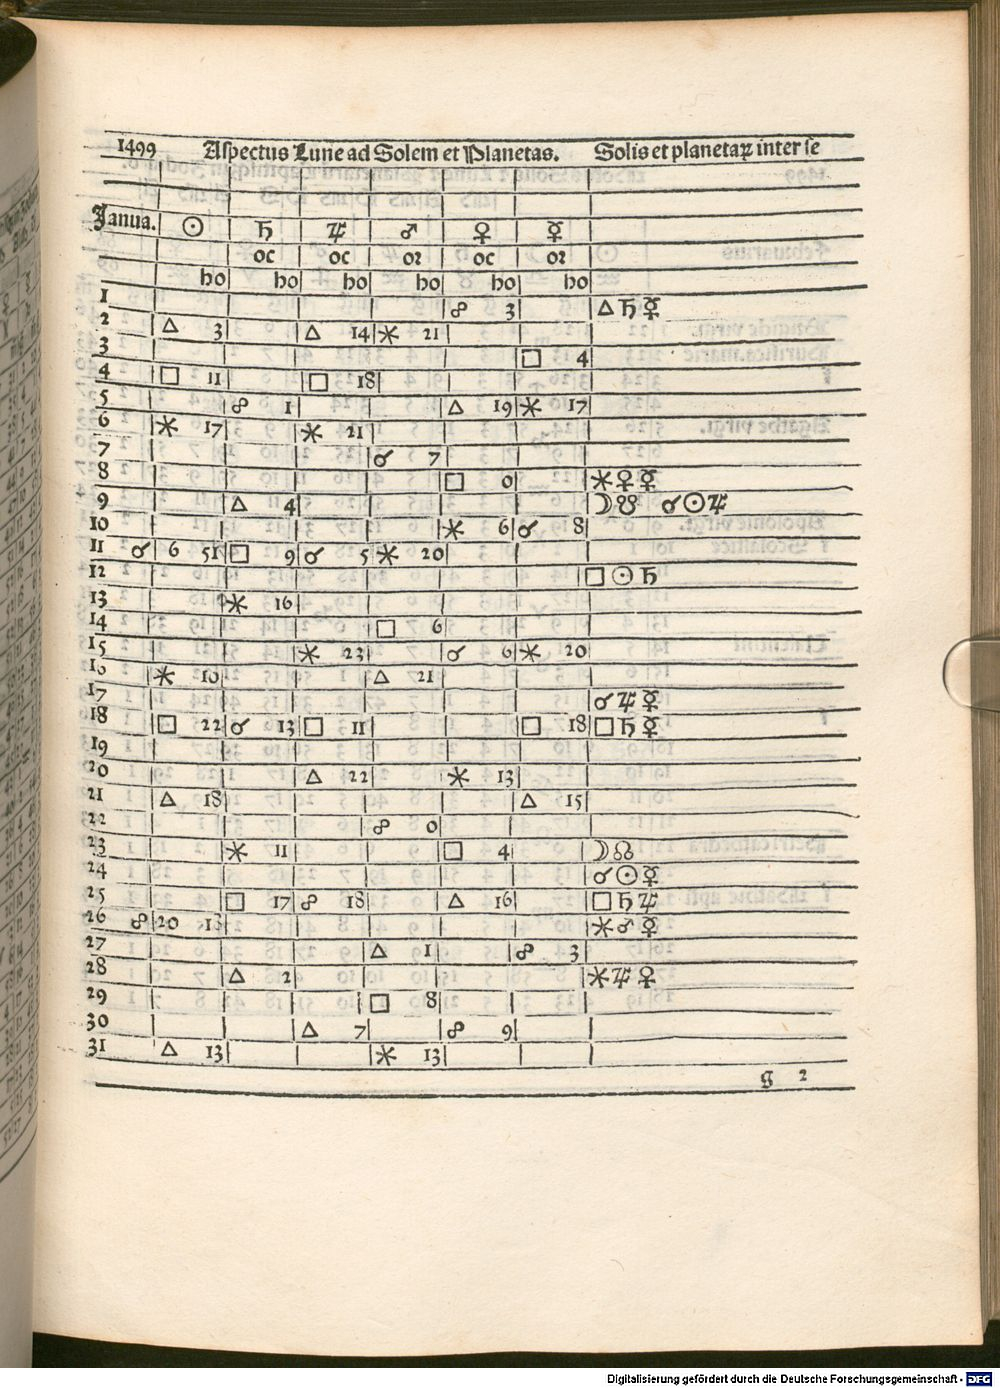 1499 Aspectus Lune ad Solem et Planetas. Solis et planetaꝝ inter se
Janua. ☉ ♄ ♃ ♂ ♀ ☿
oc oc oꝛ oc oꝛ
ho ho ho ho ho ho
1 ☍ 3 △ ♄ ☿
2 △ 3 △ 14 ⚹ 21
3 □ 4
4 □ 11 □ 18
5 ☍ 1 △ 19 ⚹ 17
6 ⚹ 17 ⚹ 21
7 ☌ 7
8 □ 0 ⚹ ♀ ☿
9 △ 4 ☽ ☋ ☌ ☉ ♃
10 ⚹ 6 ☌ 8
11 ☌ 6 51 □ 9 ☌ 5 ⚹ 20
12 □ ☉ ♄
13 ⚹ 16
14 □ 6
15 ⚹ 23 ☌ 6 ⚹ 20
16 ⚹ 10 △ 21
17 ☌ ♃ ☿
18 □ 22 ☌ 13 □ 11 □ 18 □ ♄ ☿
19
20 △ 22 ⚹ 13
21 △ 18 △ 15
22 ☍ 0
23 ⚹ 11 □ 4 ☽ ☊
24 ☌ ☉ ☿
25 □ 17 ☍ 18 △ 16 □ ♄ ♃
26 ☍ 20 13 ⚹ ♂ ☿
27 △ 1 ☍ 3
28 △ 2 ⚹ ♃ ♀
29 □ 8
30 △ 7 ☍ 9
31 △ 13 ⚹ 13
g 2
Digitalisierung gefördert durch die Deutsche Forschungsgemeinschaft - DFG